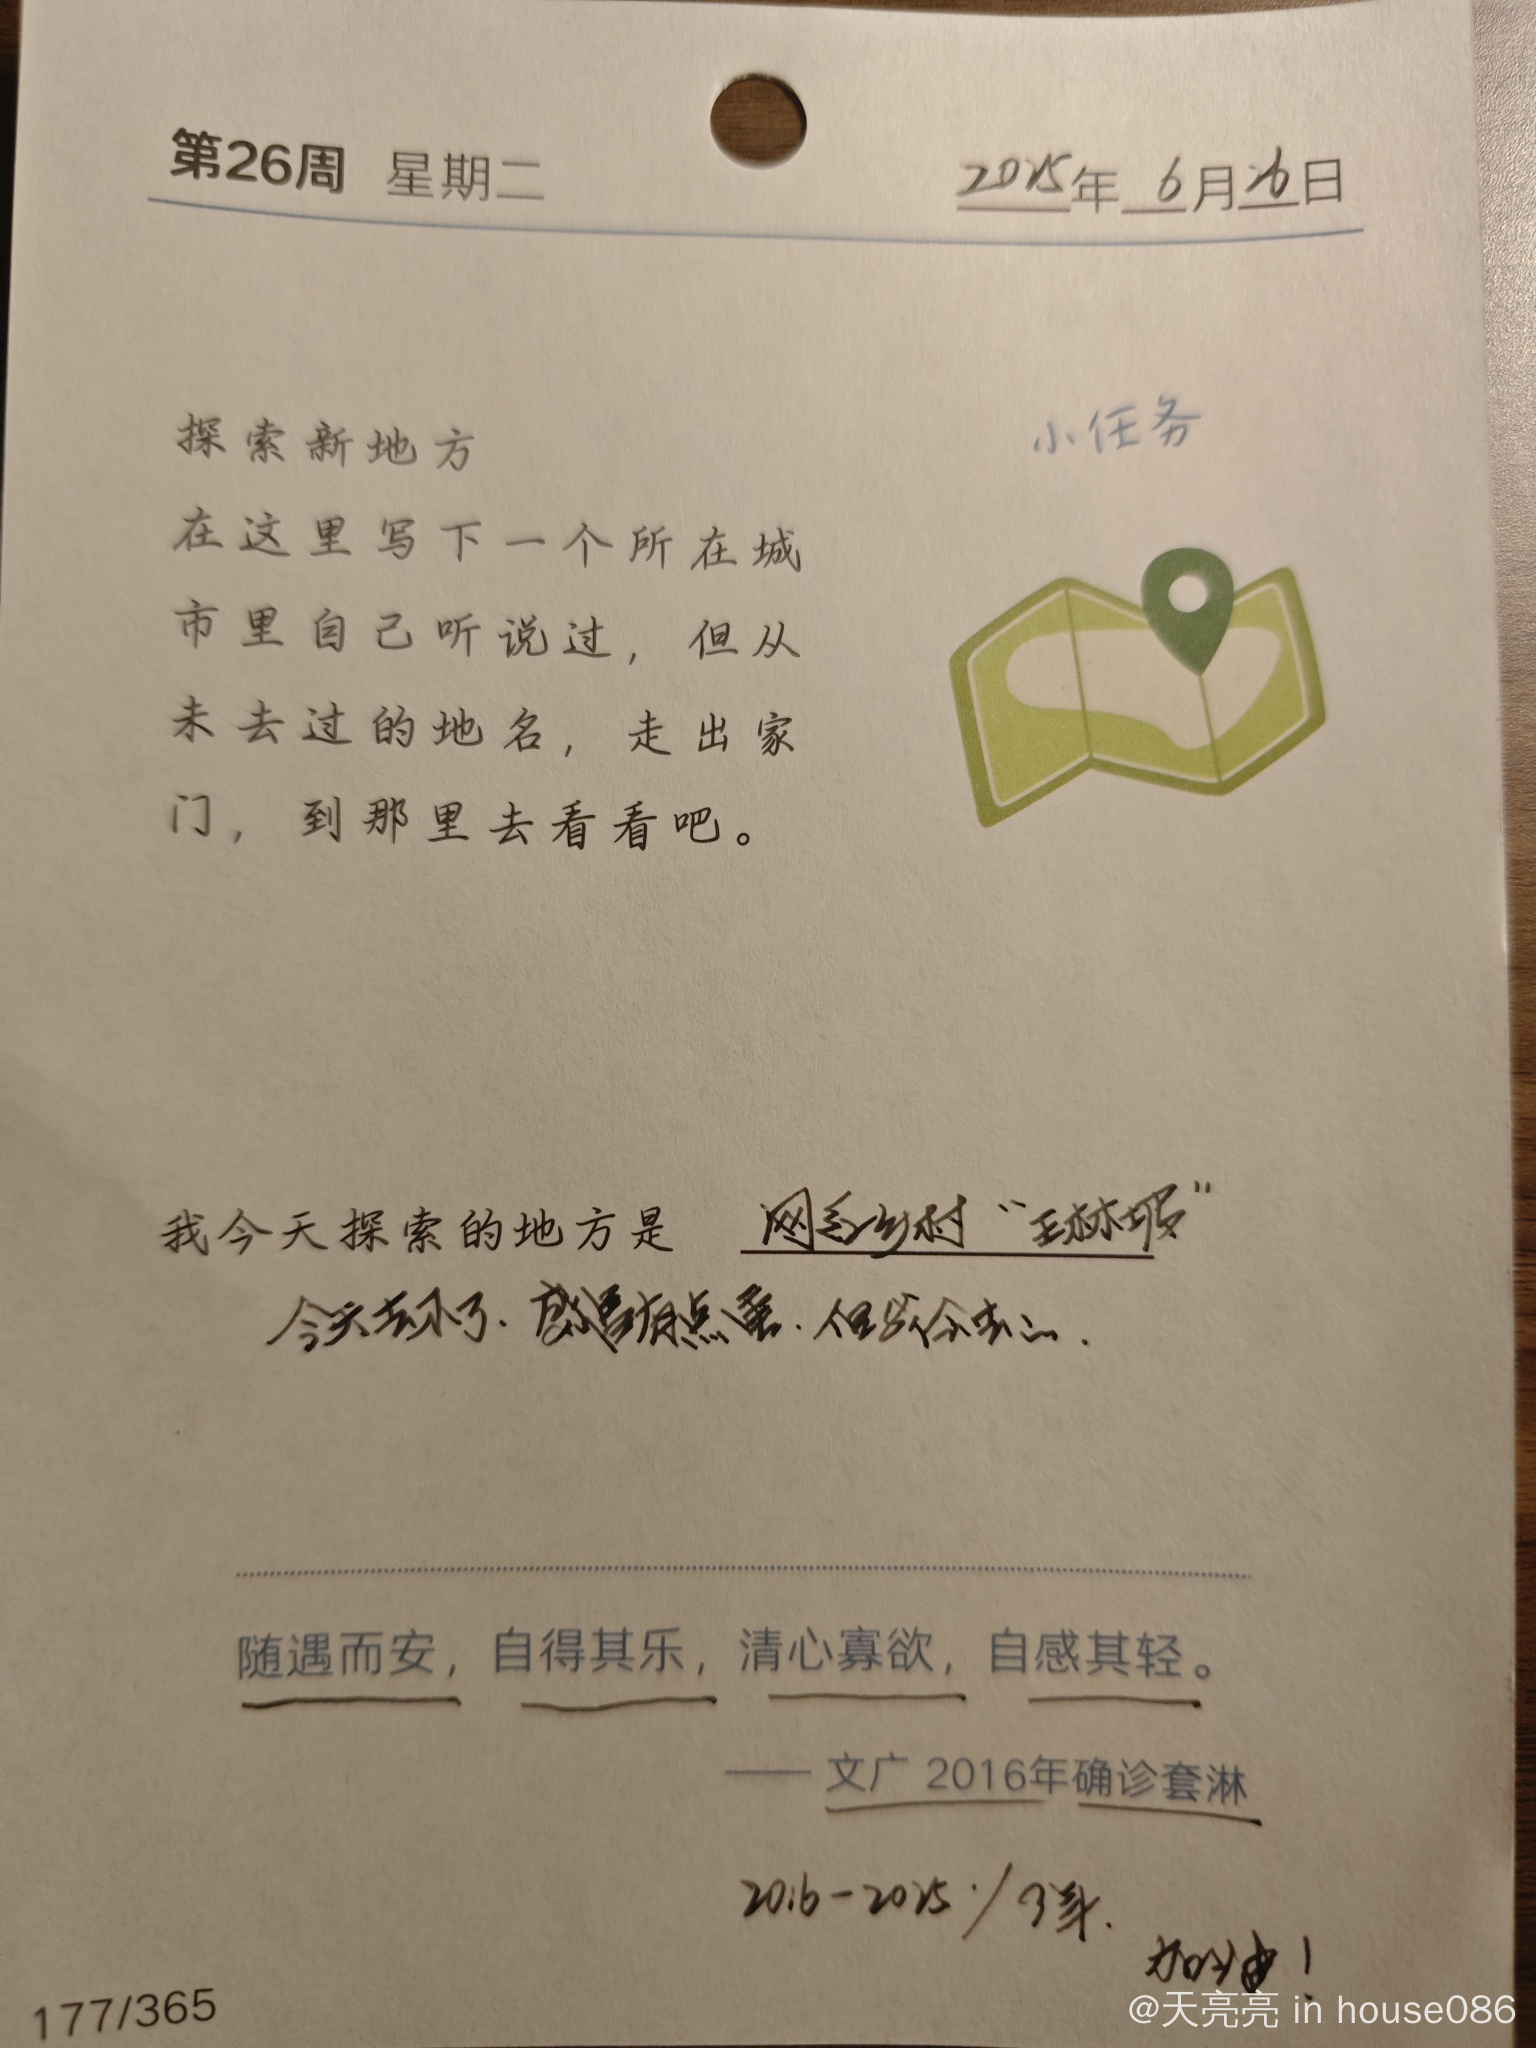 第26周 星期二
2025年 6月26日
小任务
探索新地方
在这里写下一个所在城
市里自己听说过，但从
未去过的地名，走出家
门，到那里去看看吧。
我今天探索的地方是 网红乡村“王林坝”
今天去不了. 有点重. 但
随遇而安，自得其乐，清心寡欲，自感其轻。
—— 文广 2016年确诊套淋
2016-2025
加油！
177/365
@天亮亮 in house086